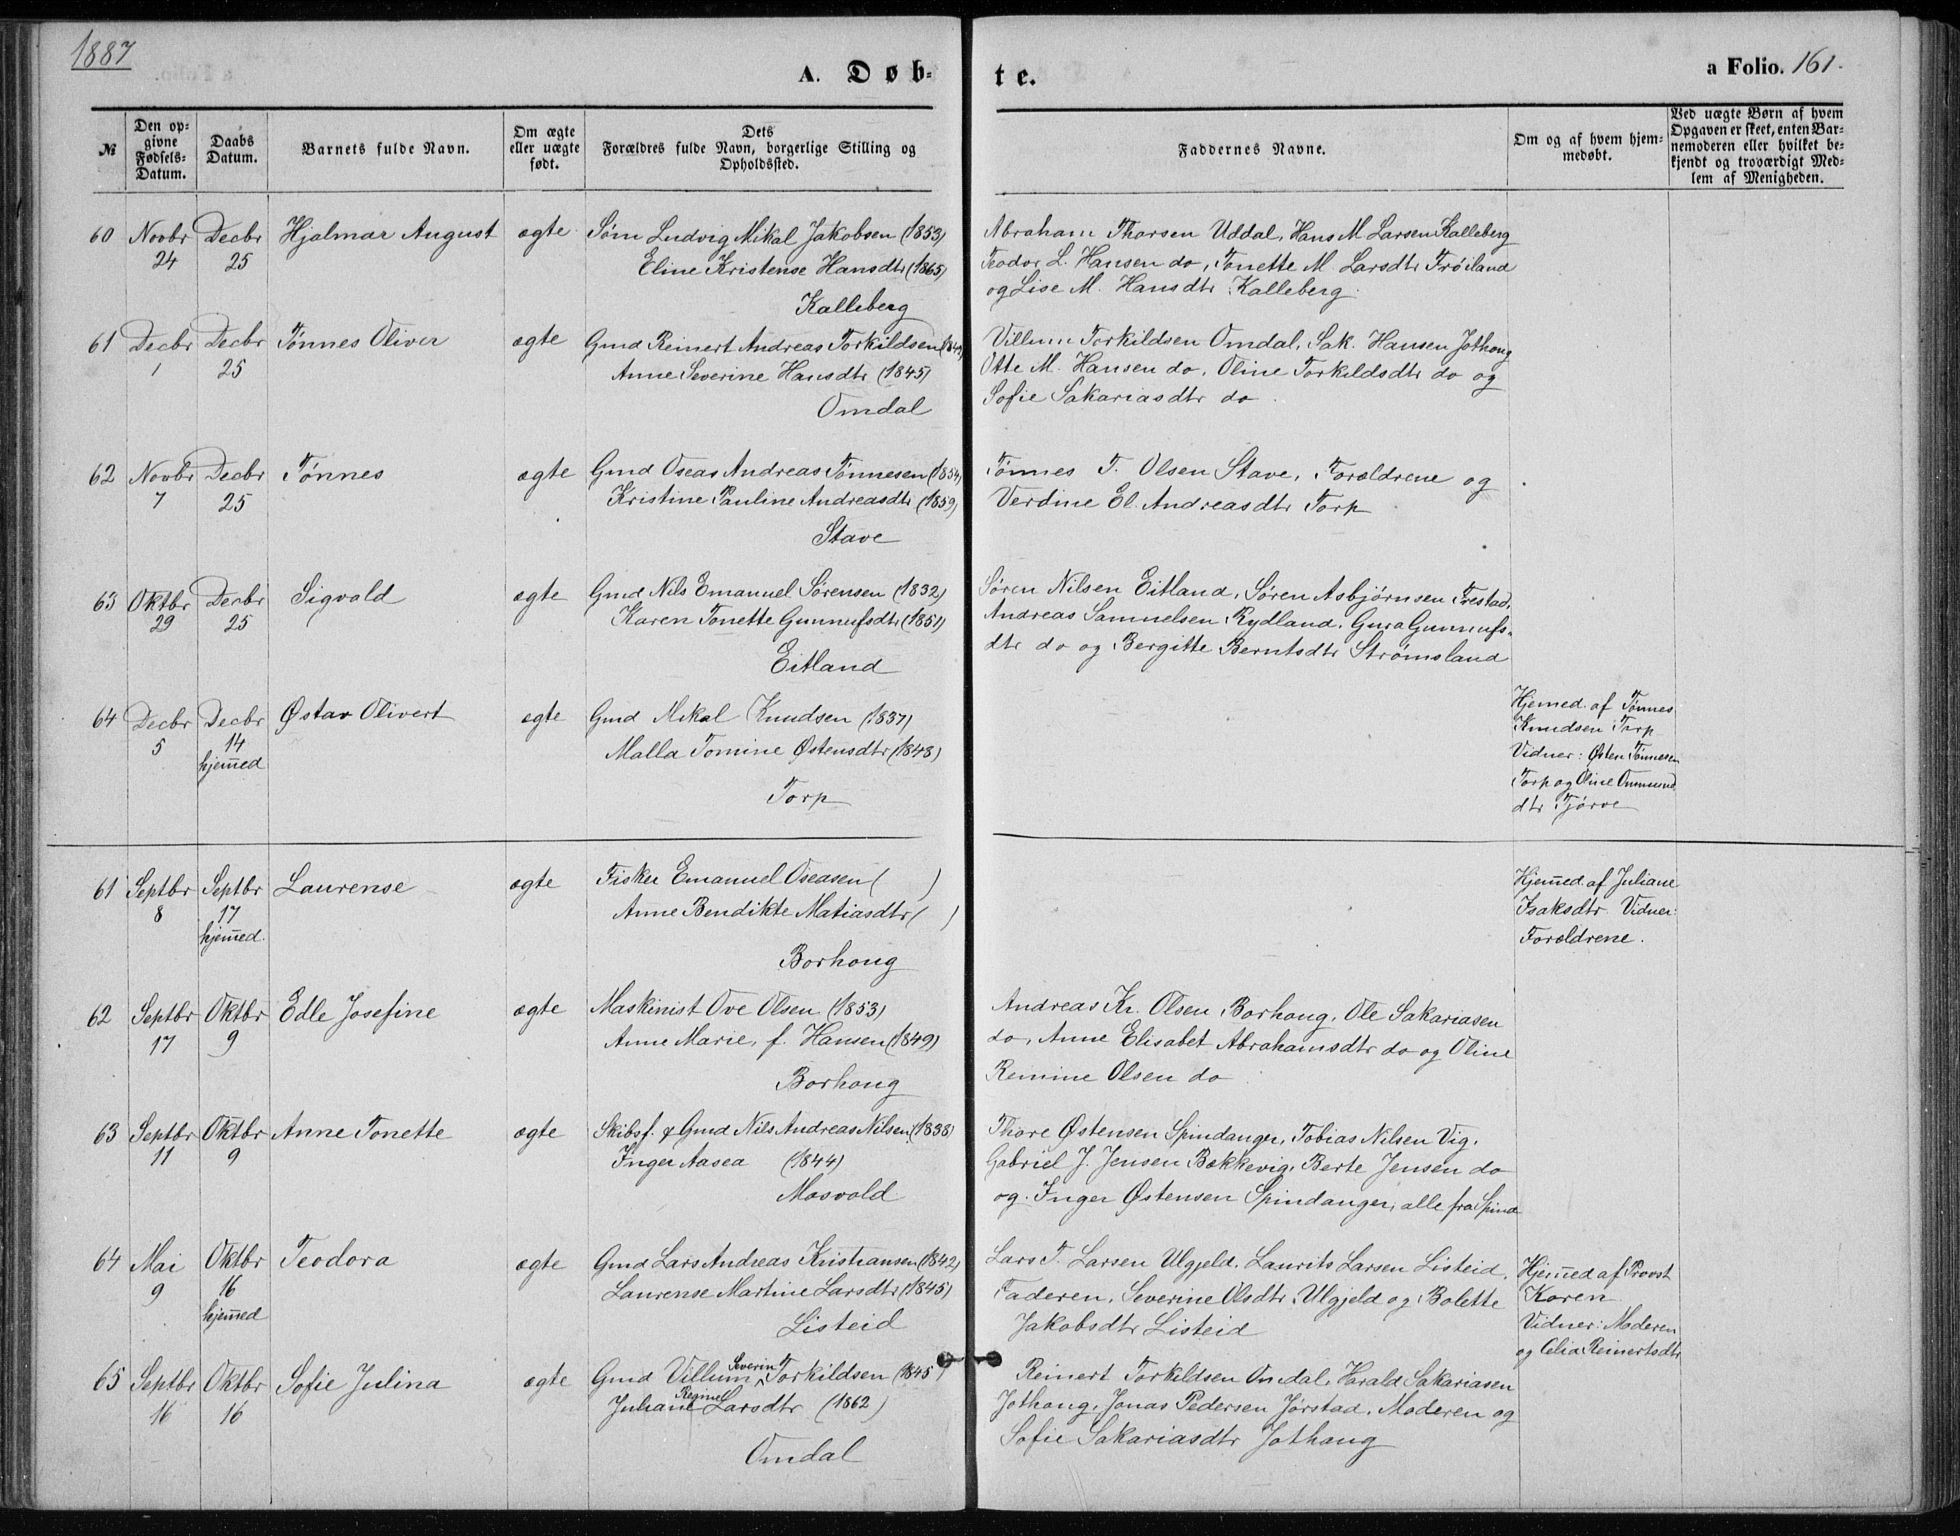 1887
A. Døb-
te.
a Folio. 161.
№
Den op-
givne
Fødsels-
Datum.
Daabs
Datum.
Barnets fulde Navn.
Om ægte
eller uægte
født.
Dets
Forældres fulde Navn, borgerlige Stilling og
Opholdssted.
Faddernes Navne.
Om og af hvem hjem-
medøbt.
Ved uægte Børn af hvem
Opgaven er skeet, enten Bar-
nemoderen eller hvilket be-
kjendt og troværdigt Med-
lem af Menigheden.
60 Novbr 24 Decbr 25 Hjalmar August ægte Søm Ludvig Mikal Jakobsen (1853)
Eline Kristense Hansdtr (1865)
Kalleberg
Abraham Thorsen Uddal, Hans M. Larsen Kalleberg
Teodor L. Hansen do, Tonette M. Larsdtr Frøiland
og Lise M. Hansdtr Kalleberg.
61 Decbr 1 Decbr 25 Tønnes Oliver ægte Gmd Reinert Andreas Torkildsen
Anne Severine Hansdtr (1845)
Omdal
Villum Torkildsen Omdal, Sak. Hansen Jothoug
Otte M. Hansen do, Oline Torkildsdtr do og
Sofie Sakariasdtr do.
62 Novbr 7 Decbr 25 Tønnes ægte Gmd Oseas Andreas Tønnesen (1854)
Kristine Pauline Andreasdtr (1859)
Stave
Tønnes T. Olsen Stave, Forældrene og
Verdine El. Andreasdtr Torp
63 Oktbr 29 Decbr 25 Sigvald ægte Gmd Nils Emanuel Sørensen (1832)
Karen Tonette Gunnufsdtr (1851)
Eitland
Søren Nilsen Eitland, Søren Asbjørnsen Frestad,
Andreas Samuelsen Rydland, Guro Gunnufs-
dtr do og Bergitte Berntsdtr Strømsland
64 Decbr 5 Decbr 14 hjemmed Østav Olivert ægte Gmd Mikal Knudsen (1837)
Malla Tomine Østensdtr (1843)
Torp
Hjemed. af Tønnes
Knudsen Torp
Vidner: Østen Tønnesen
Torp og Oline Ommund
dtr Tjørve
61 Septbr 8 Septbr 17 hjemmed. Laurense ægte Fisker Emanuel Oseasen ( )
Anne Bendikte Matiasdtr ( )
Borhoug
Hjemmed. af Juliane
Isaksdtr. Vidner:
Forældrene.
62 Septbr 17 Oktbr 9 Edle Josefine ægte Maskinist Ove Olsen (1853)
Anne Marie, f. Hansen (1849)
Borhoug
Andreas Kr. Olsen Borhoug, Ole Sakariasen
do, Anne Elisabet Abrahamsdtr do og Oline
Remine Olsen do
63 Septbr 11 Oktbr 9 Anne Tonette ægte Skibsf. & Gmd Nils Andreas Nilsen (1838)
Inger Aasea (1844)
Mosvold
Thore Østensen Spindanger, Tobias Nilsen Vig,
Gabriel J. Jensen Bækkevig, Berte Jensen do
og Inger Østensen Spindanger, alle fra Spind
64 Mai 9 Oktbr 16 hjemmed Teodora ægte Gmd Lars Andreas Kristiansen (1842)
Laurense Martine Larsdtr (1845)
Listeid
Lars T. Larsen Ulgjeld, Laurits Larsen Listeid,
Faderen, Severine Olsdtr Ulgjeld og Bolette
Jakobsdtr Listeid
Hjemmed af Provst
Koren
Vidner: Moderen
og Celia Reinertsdtr
65 Septbr 16 Oktbr 16 Sofie Julina ægte Gmd Villum Severin Torkildsen (1845)
Juliane Regine Larsdtr (1862)
Omdal
Reinert Torkildsen Omdal, Harald Sakariasen
Jothoug, Jonas Pedersen Jørstad, Moderen og
Sofie Sakariasdtr Jothoug